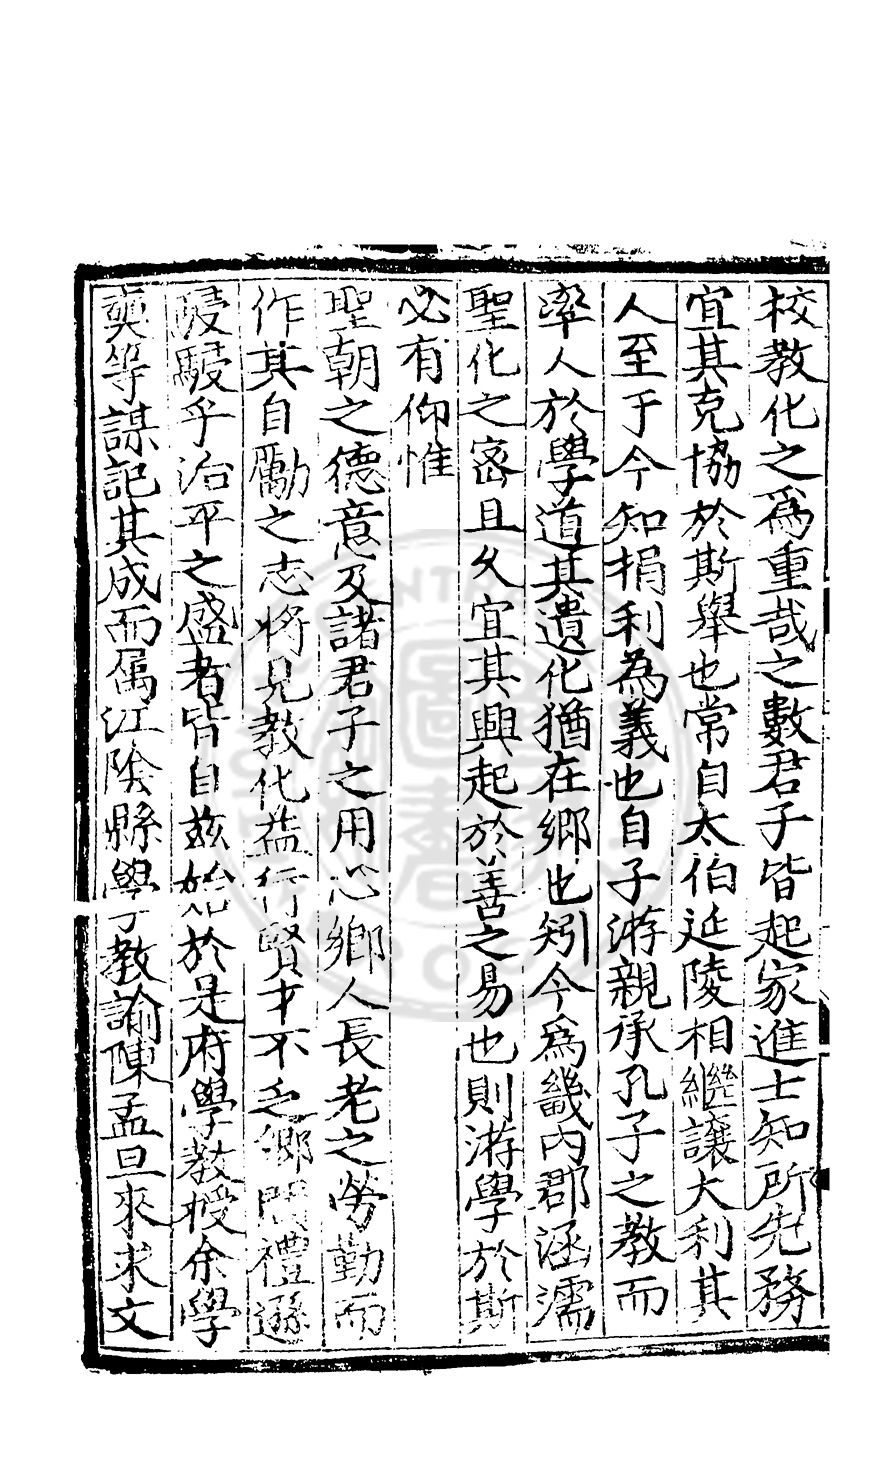 校教化之為重哉之數君子皆起家進士知所先務
宜其克協於斯舉也常自太伯延陵相繼讓大利其
人至于今知捐利為義也自子游親承孔子之教而
率人於學道其遺化猶在鄉也矧今為畿内郡涵濡
聖化之宻且久宜其興起於善之易也則游學於斯
必有仰惟
聖朝之德意及諸君子之用心鄉人長老之勞勤而
作其自勵之志將見教化益行賢才不乏鄉閭禮遜
駸駸乎治平之盛者皆自兹始於是府學教授余學
奭等謀記其成而属江陰縣學教諭陳孟旦來求文